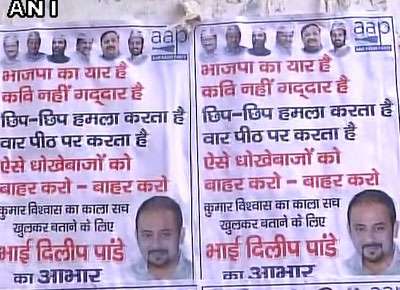 ANI
aap
AAM AADMI PARTY
भाजपा का यार है
कवि नहीं गद्दार है
छिप-छिप हमला करता है
वार पीठ पर करता है
ऐसे धोखेबाजों को
बाहर करो - बाहर करो
कुमार विश्वास का काला सच
खुलकर बताने के लिए
भाई दिलीप पांडे
का आभार
aap
AAM AADMI PARTY
भाजपा का यार है
कवि नहीं गद्दार है
छिप-छिप हमला करता है
वार पीठ पर करता है
ऐसे धोखेबाजों को
बाहर करो - बाहर करो
कुमार विश्वास का काला सच
खुलकर बताने के लिए
भाई दिलीप पांडे
का आभार